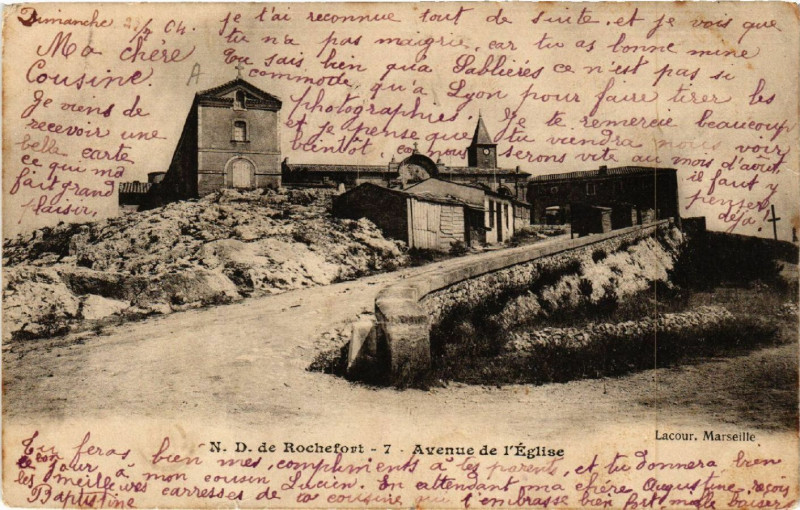 Dimanche
Ma chère
Cousine.
Je viens de
recevoir une
belle carte
ce qui m'a
fait grand
plaisir.
je t'ai reconnue tout de suite, et je vois que
tu n'a pas maigrie, car tu as bonne mine
Tu sais bien qu'à Sablières ce n'est pas si
commode, qu'à Lyon pour faire tirer les
photographies. Je te remercie beaucoup
et je pense que tu viendra nous voir
bientôt car nous serons vite au mois d'août,
il faut y
penser
déjà!
N. D. de Rochefort - 7 - Avenue de l'Église
Lacour, Marseille
Tu feras bien mes compliments à tes parents, et tu donnera bien
le jour à mon cousin Lucien. En attendant ma chère Augustine, reçois
les meilleures caresses de ta cousine qui t'embrasse bien fort, mille baisers
Baptistine